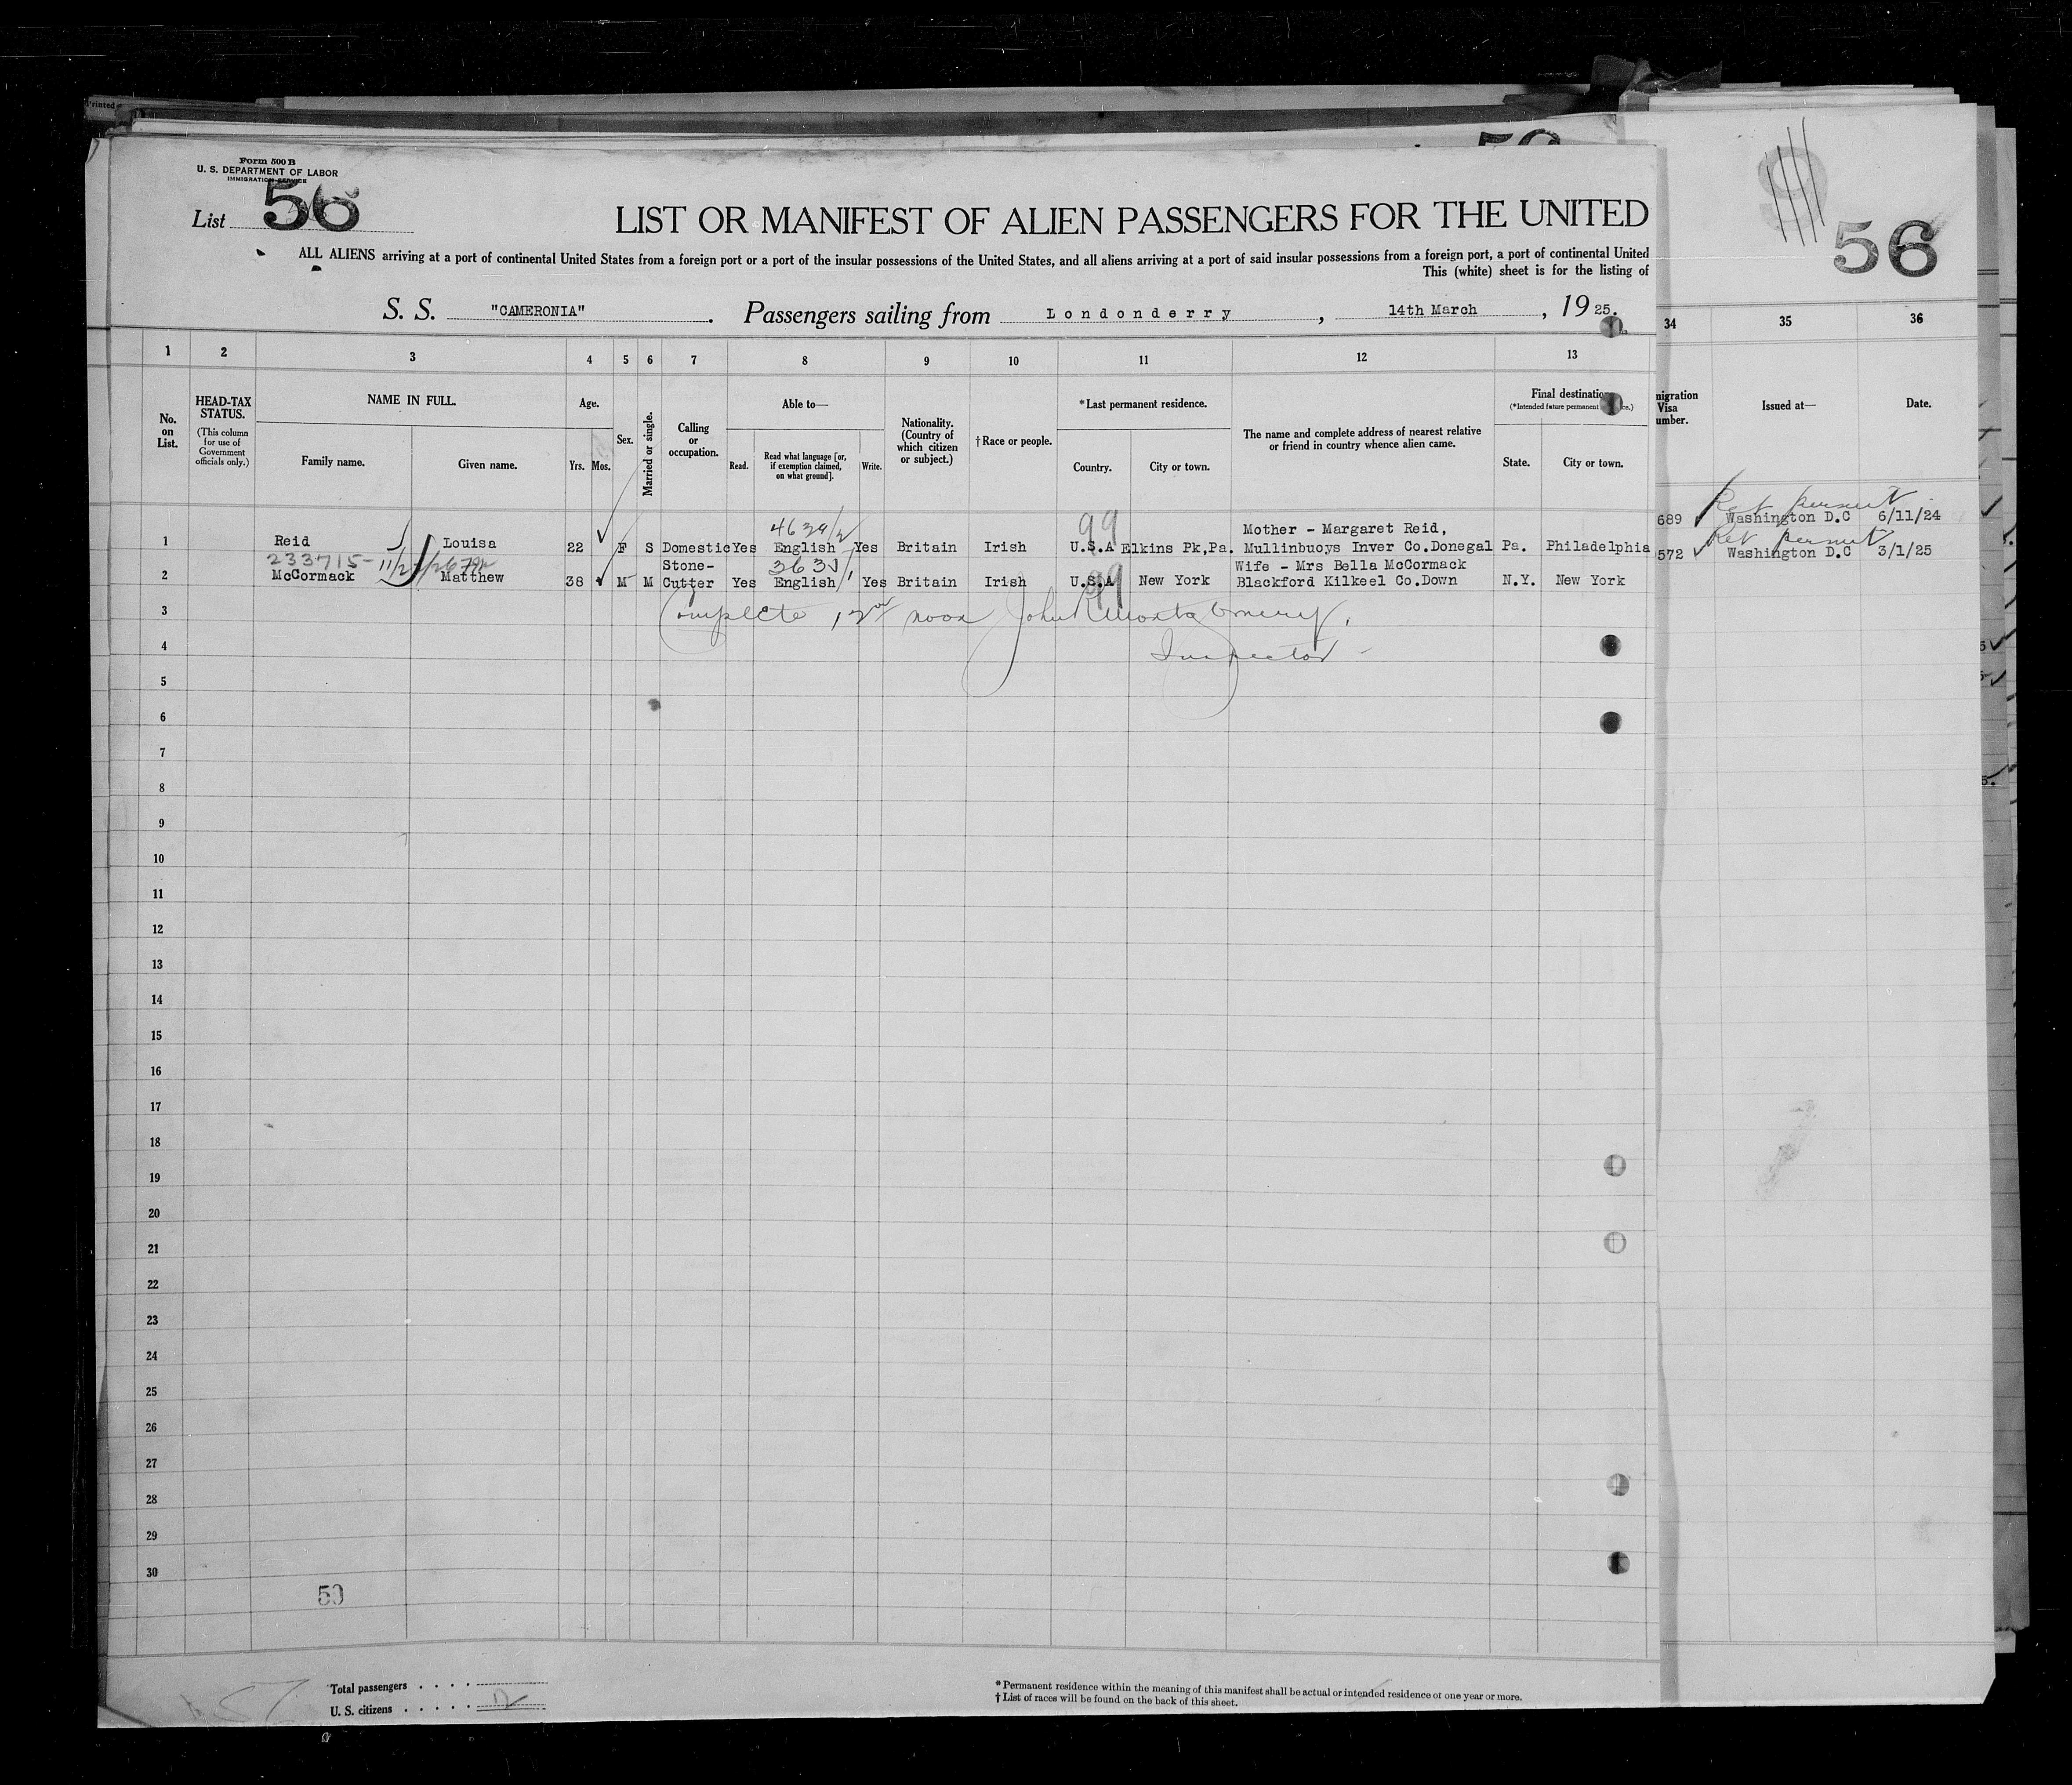 Printed
Form 500 B
U. S. DEPARTMENT OF LABOR
IMMIGRATION SERVICE
List 56
56
LIST OR MANIFEST OF ALIEN PASSENGERS FOR THE UNITED
ALL ALIENS arriving at a port of continental United States from a foreign port or a port of the insular possessions of the United States, and all aliens arriving at a port of said insular possessions from a foreign port, a port of continental United
This (white) sheet is for the listing of
S. S. "CAMERONIA" . Passengers sailing from Londonderry , 14th March , 1925.
1 2 3 4 5 6 7 8 9 10 11 12 13 34 35 36
No. on List.
HEAD-TAX STATUS.
(This column for use of Government officials only.)
NAME IN FULL.
Family name. Given name.
Age.
Yrs. Mos.
Sex.
Married or single.
Calling or occupation.
Able to—
Read. Read what language [or, if exemption claimed, on what ground]. Write.
Nationality. (Country of which citizen or subject.)
†Race or people.
*Last permanent residence.
Country. City or town.
The name and complete address of nearest relative or friend in country whence alien came.
Final destination
(*Intended future permanent
State. City or town.
migration Visa umber.
Issued at—
Date.
Ret permit
689 Washington D.C 6/11/24
99
Mother - Margaret Reid,
1 Reid Louisa 22 F S Domestic Yes English Yes Britain Irish U.S.A Elkins Pk,Pa. Mullinbuoys Inver Co.Donegal Pa. Philadelphia
Ret permit
572 Washington D.C 3/1/25
233715-
Stone- Wife - Mrs Bella McCormack
2 McCormack Matthew 38 M M Cutter Yes English Yes Britain Irish U.S.A New York Blackford Kilkeel Co.Down N.Y. New York
99
3 Complete 12 noon John R Montgomery,
4 Inspector
5
6
7
8
9
10
11
12
13
14
15
16
17
18
19
20
21
22
23
24
25
26
27
28
29
30
50
Total passengers
U. S. citizens
*Permanent residence within the meaning of this manifest shall be actual or intended residence of one year or more.
†List of races will be found on the back of this sheet.